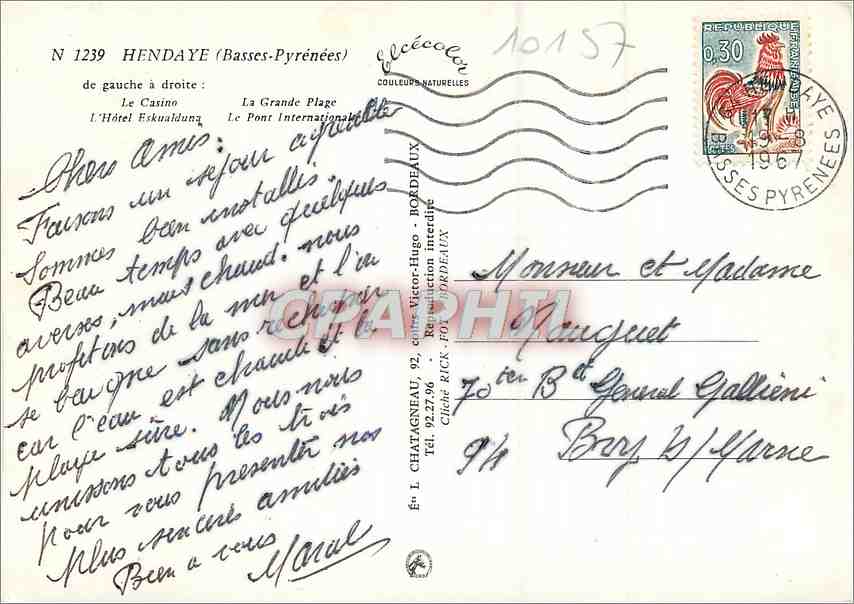 N 1239 HENDAYE (Basses-Pyrénées)
de gauche à droite :
Le Casino La Grande Plage
L'Hôtel Eskualduna Le Pont International
Elcécolor
COULEURS NATURELLES
10157
REPUBLIQUE FRANCAISE
0,30
HENDAYE
19-8
1967
BASSES PYRENEES
Chers Amis.
Faisons un séjour agréable
Sommes bien installés.
Beau temps avec quelques
averses, mais chaud. nous
profitons de la mer et l'on
se baigne sans rechigner
car l'eau est chaude et la
plage sûre. Nous nous
unissons tous les trois
pour vous présenter nos
plus sincères amitiés
Bien a vous
Éts L. CHATAGNEAU, 92, cours Victor-Hugo - BORDEAUX
Tél. 92.27.96 - Reproduction interdite
Cliché RICK - FOT - BORDEAUX
CPAPHIL
Monsieur et Madame
70 ter Bd Général Galliéni
94 Bry s/Marne